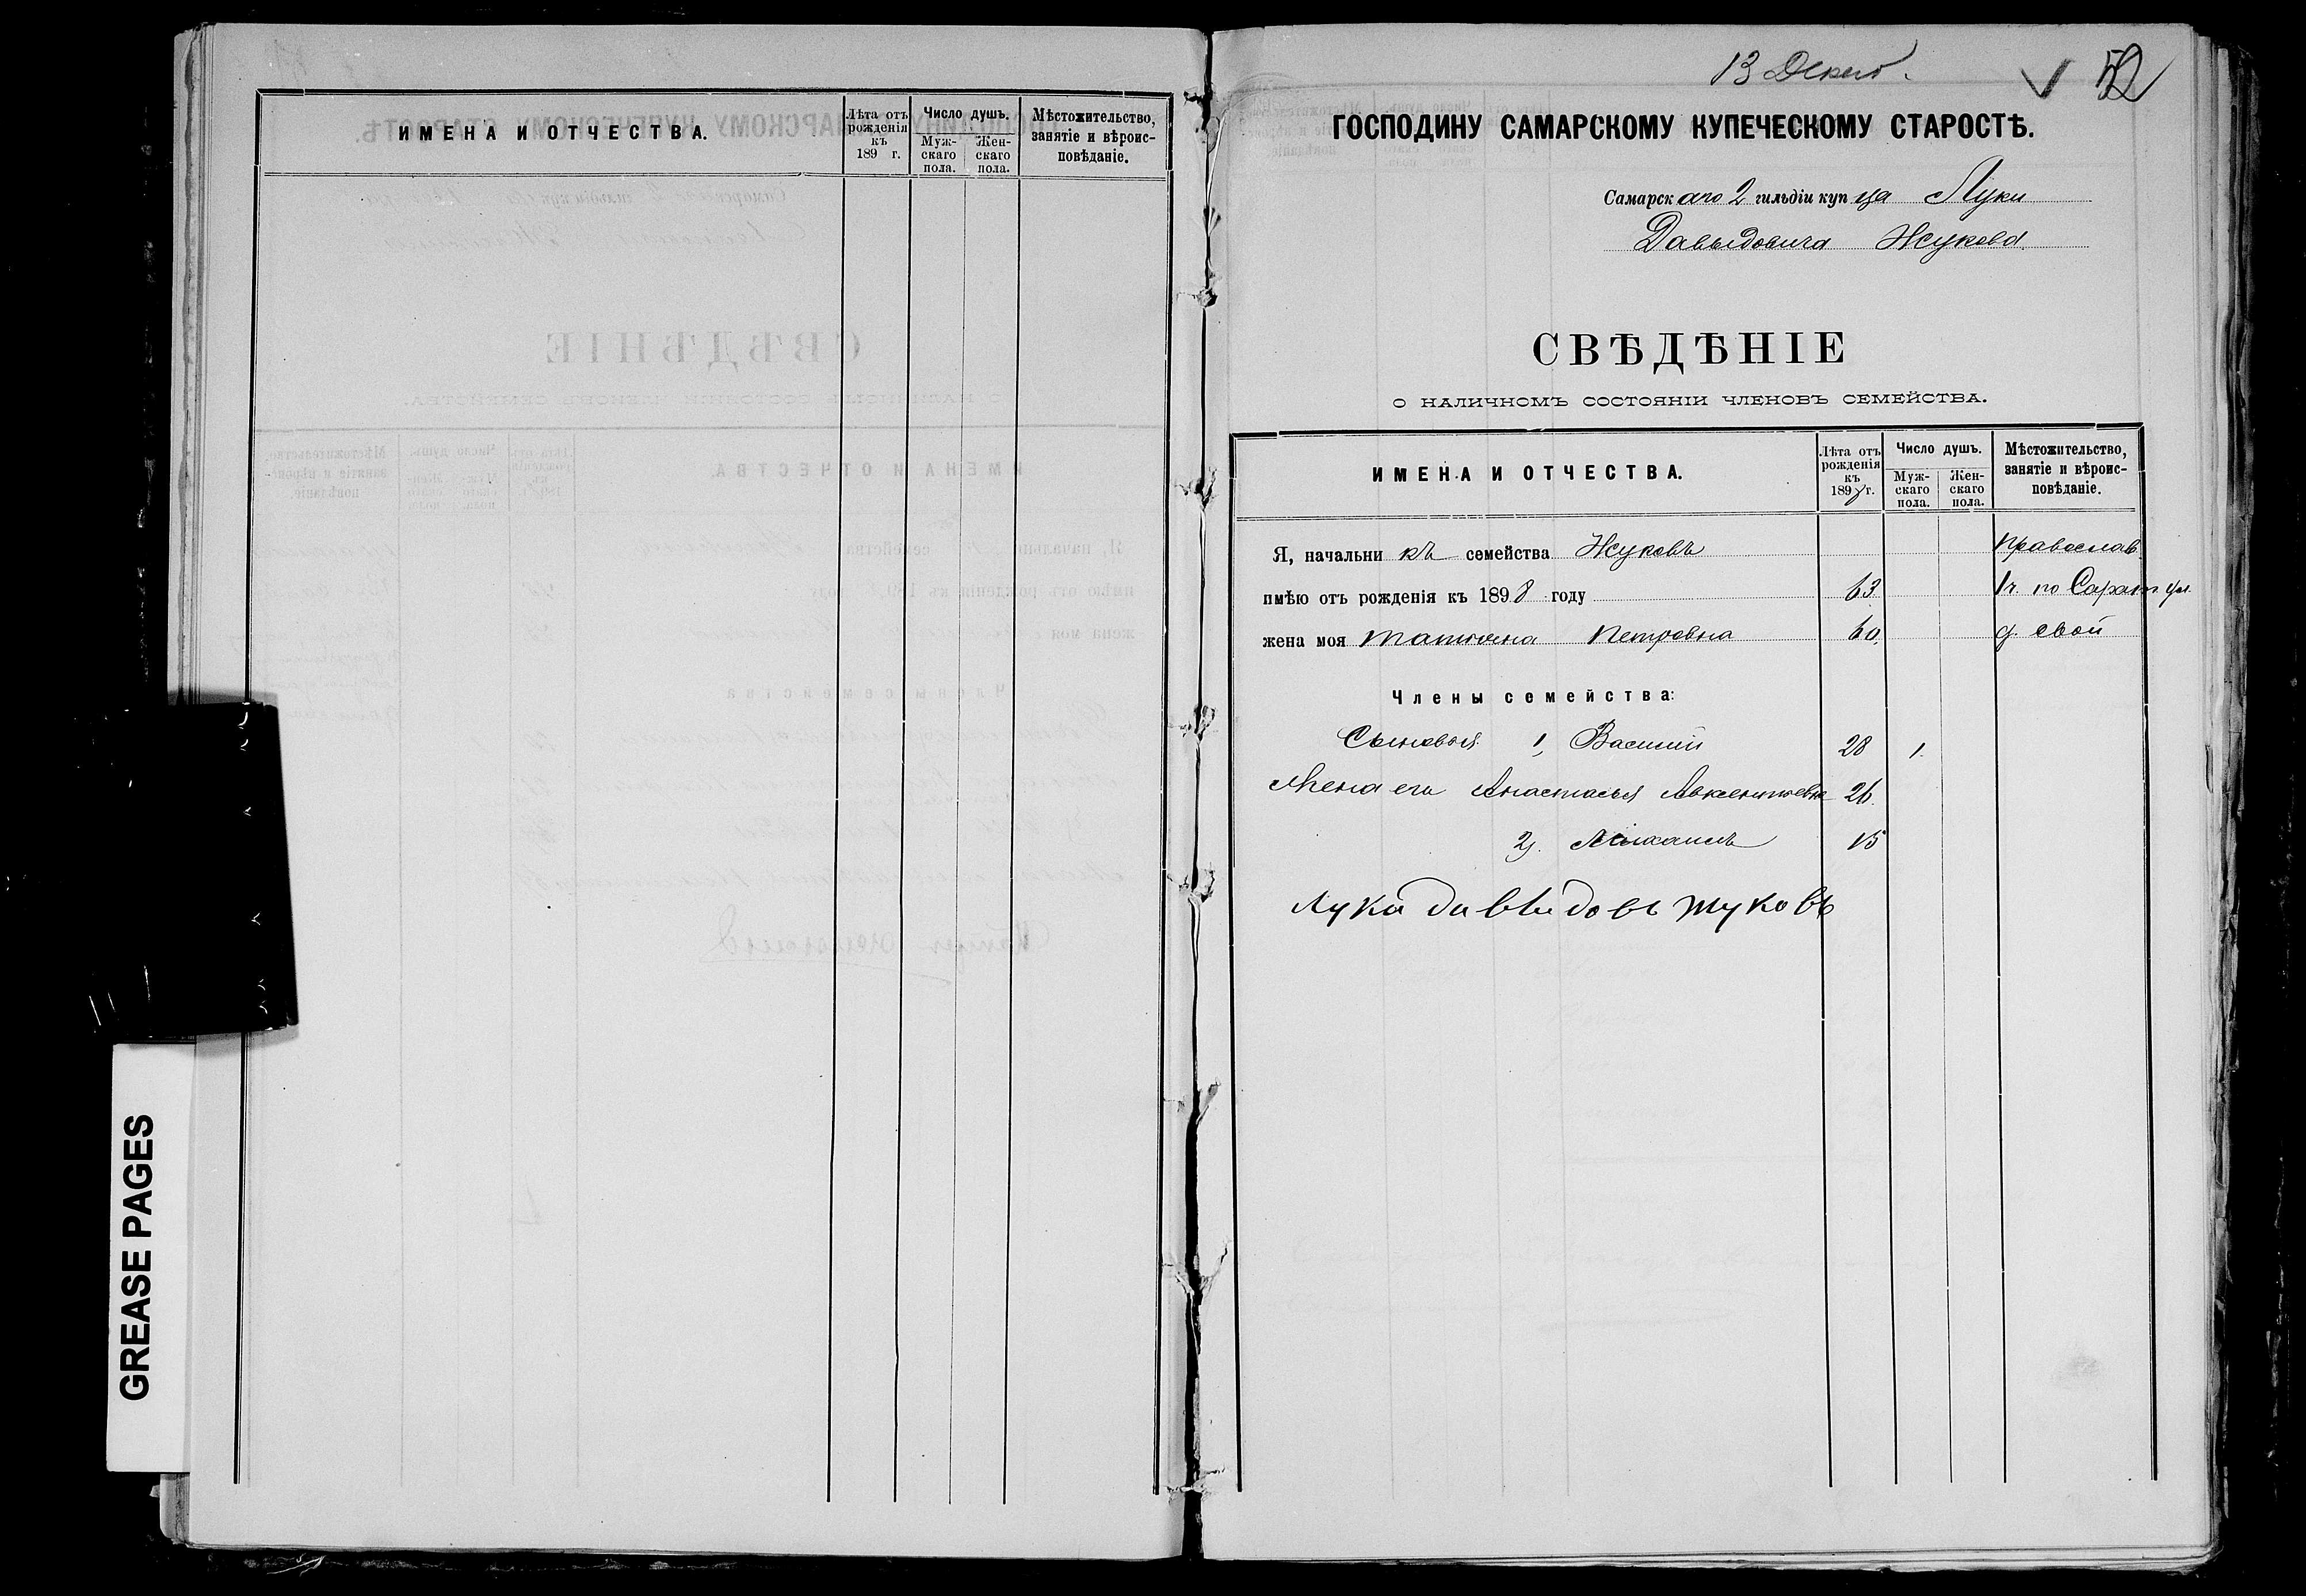 ИМЕНА И ОТЧЕСТВА.
Лѣта отъ рожденія къ 189 г.
Число душъ.
Муж-скаго пола.
Жен-скаго пола.
Мѣстожительство, занятіе и вѣроис-повѣданіе.
GREASE PAGES
13 Декаб.
52
ГОСПОДИНУ САМАРСКОМУ КУПЕЧЕСКОМУ СТАРОСТѢ.
Самарскаго 2 гильдіи купца Луки
Давыдовича Жукова
СВѢДѢНІЕ
О НАЛИЧНОМЪ СОСТОЯНІИ ЧЛЕНОВЪ СЕМЕЙСТВА.
ИМЕНА И ОТЧЕСТВА.
Лѣта отъ рожденія къ 1898 г.
Число душъ.
Муж-скаго пола.
Жен-скаго пола.
Мѣстожительство, занятіе и вѣроис-повѣданіе.
Я, начальникъ семейства Жуковъ Православ.
имѣю отъ рожденія къ 1898 году 63 1 ч. по Сарат. ул.
жена моя Татьяна Петровна 60 д. свой
Члены семейства:
Сыновья 1, Василий 28 1.
Жена его Анастасья Авксентьевна 26.
2, Михаилъ 15
Лука Давыдовъ Жуковъ